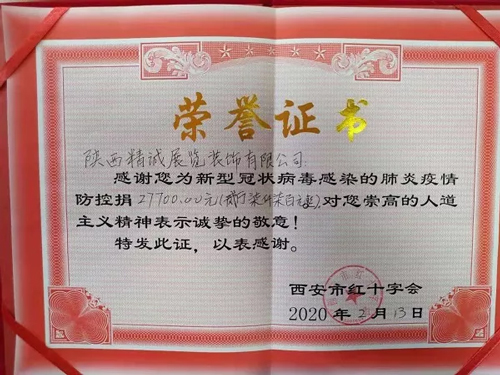 荣誉证书
陕西精诚展览装饰有限公司
感谢您为新型冠状病毒感染的肺炎疫情
防控捐27700.00元,对您崇高的人道
主义精神表示诚挚的敬意!
特发此证,以表感谢。
西安市红十字会
2020年2月13日